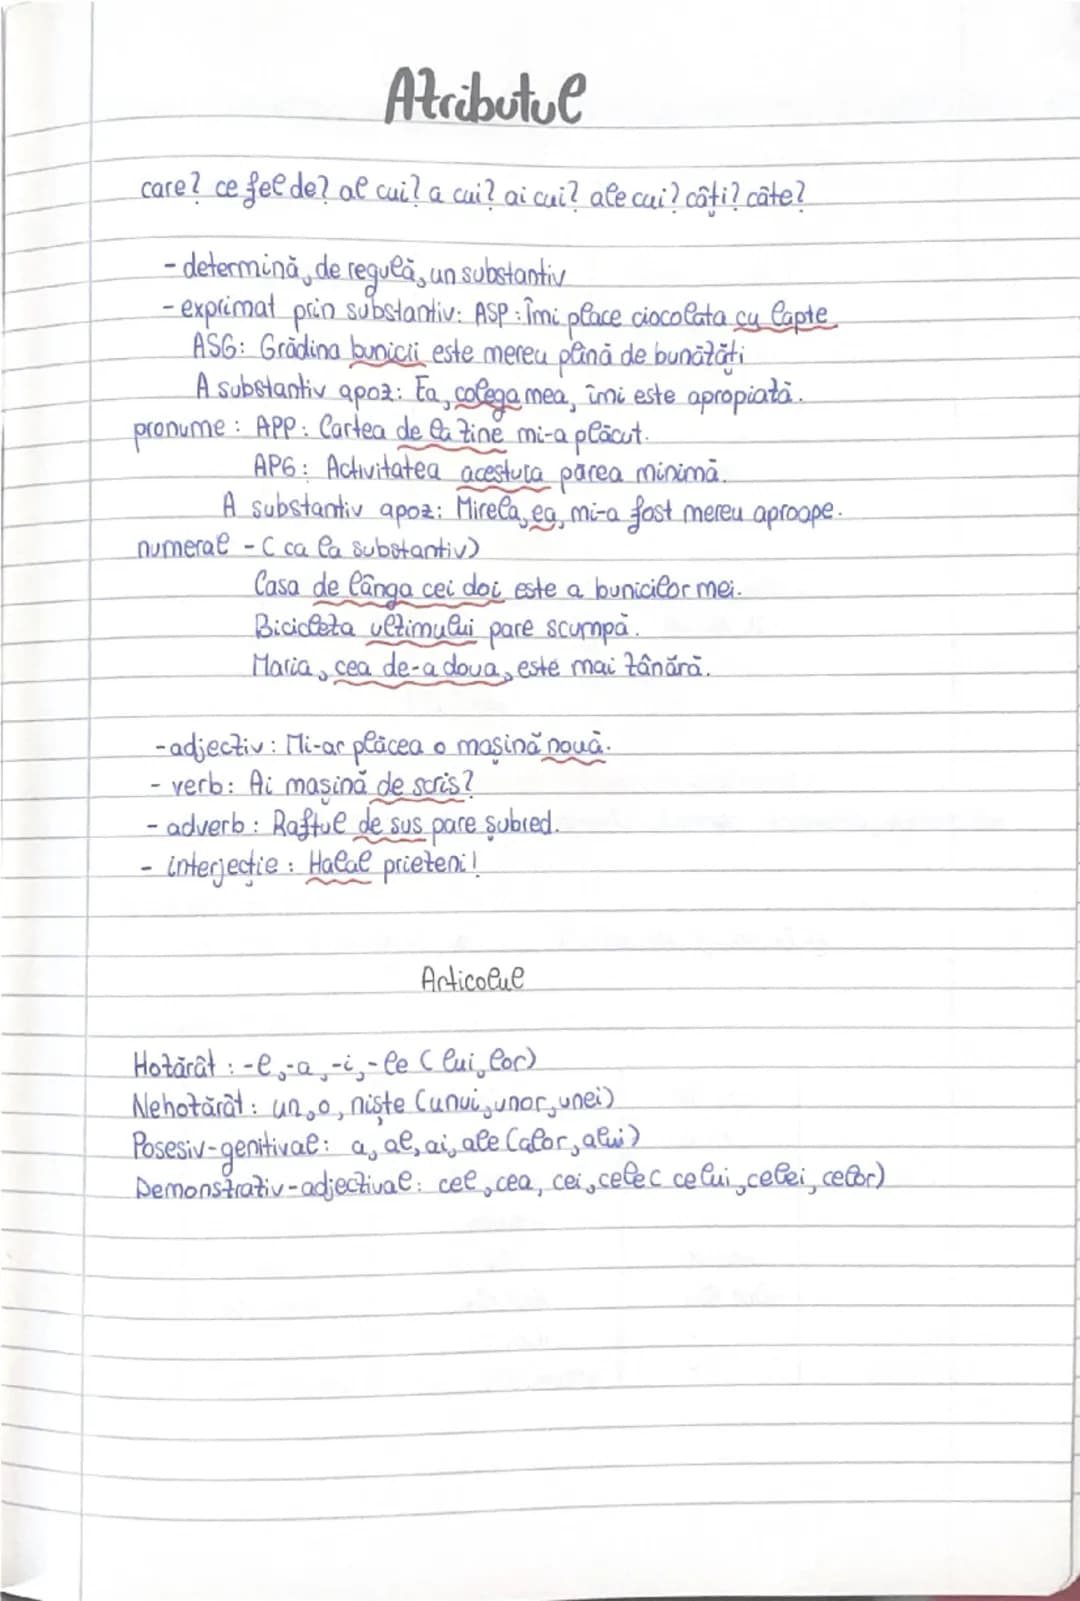 Atributul
care? ce fel de? al cui? a cui? ai cui? ale cui? câți? câte?
- determină, de regulă, un substantiv
- exprimat prin substantiv: ASP: Îmi place ciocolata cu lapte
ASG: Grădina bunicii este mereu plină de bunătăți
A substantiv apoz: Ea, colega mea, îmi este apropiată.
pronume: APP: Cartea de la tine mi-a plăcut.
APG: Activitatea acestuia părea minimă.
A substantiv apoz: Mirela, ea, mi-a fost mereu aproape.
numeral - ( ca la substantiv)
Casa de lânga cei doi este a bunicilor mei.
Bicicleta ultimului pare scumpă.
Maria, cea de-a doua, este mai tânără.
- adjectiv: Mi-ar plăcea o mașină nouă.
- verb: Ai mașină de scris?
- adverb: Raftul de sus pare șubred.
- interjecție: Halal prieteni!
Articolul
Hotărât: -l, -a, -i, -le ( lui, lor)
Nehotărât: un, o, niște (unui, unor, unei)
Posesiv-genitival: a, al, ai, ale (alor, alui)
Demonstrativ-adjectival: cel, cea, cei, cele ( celui, celei, celor)